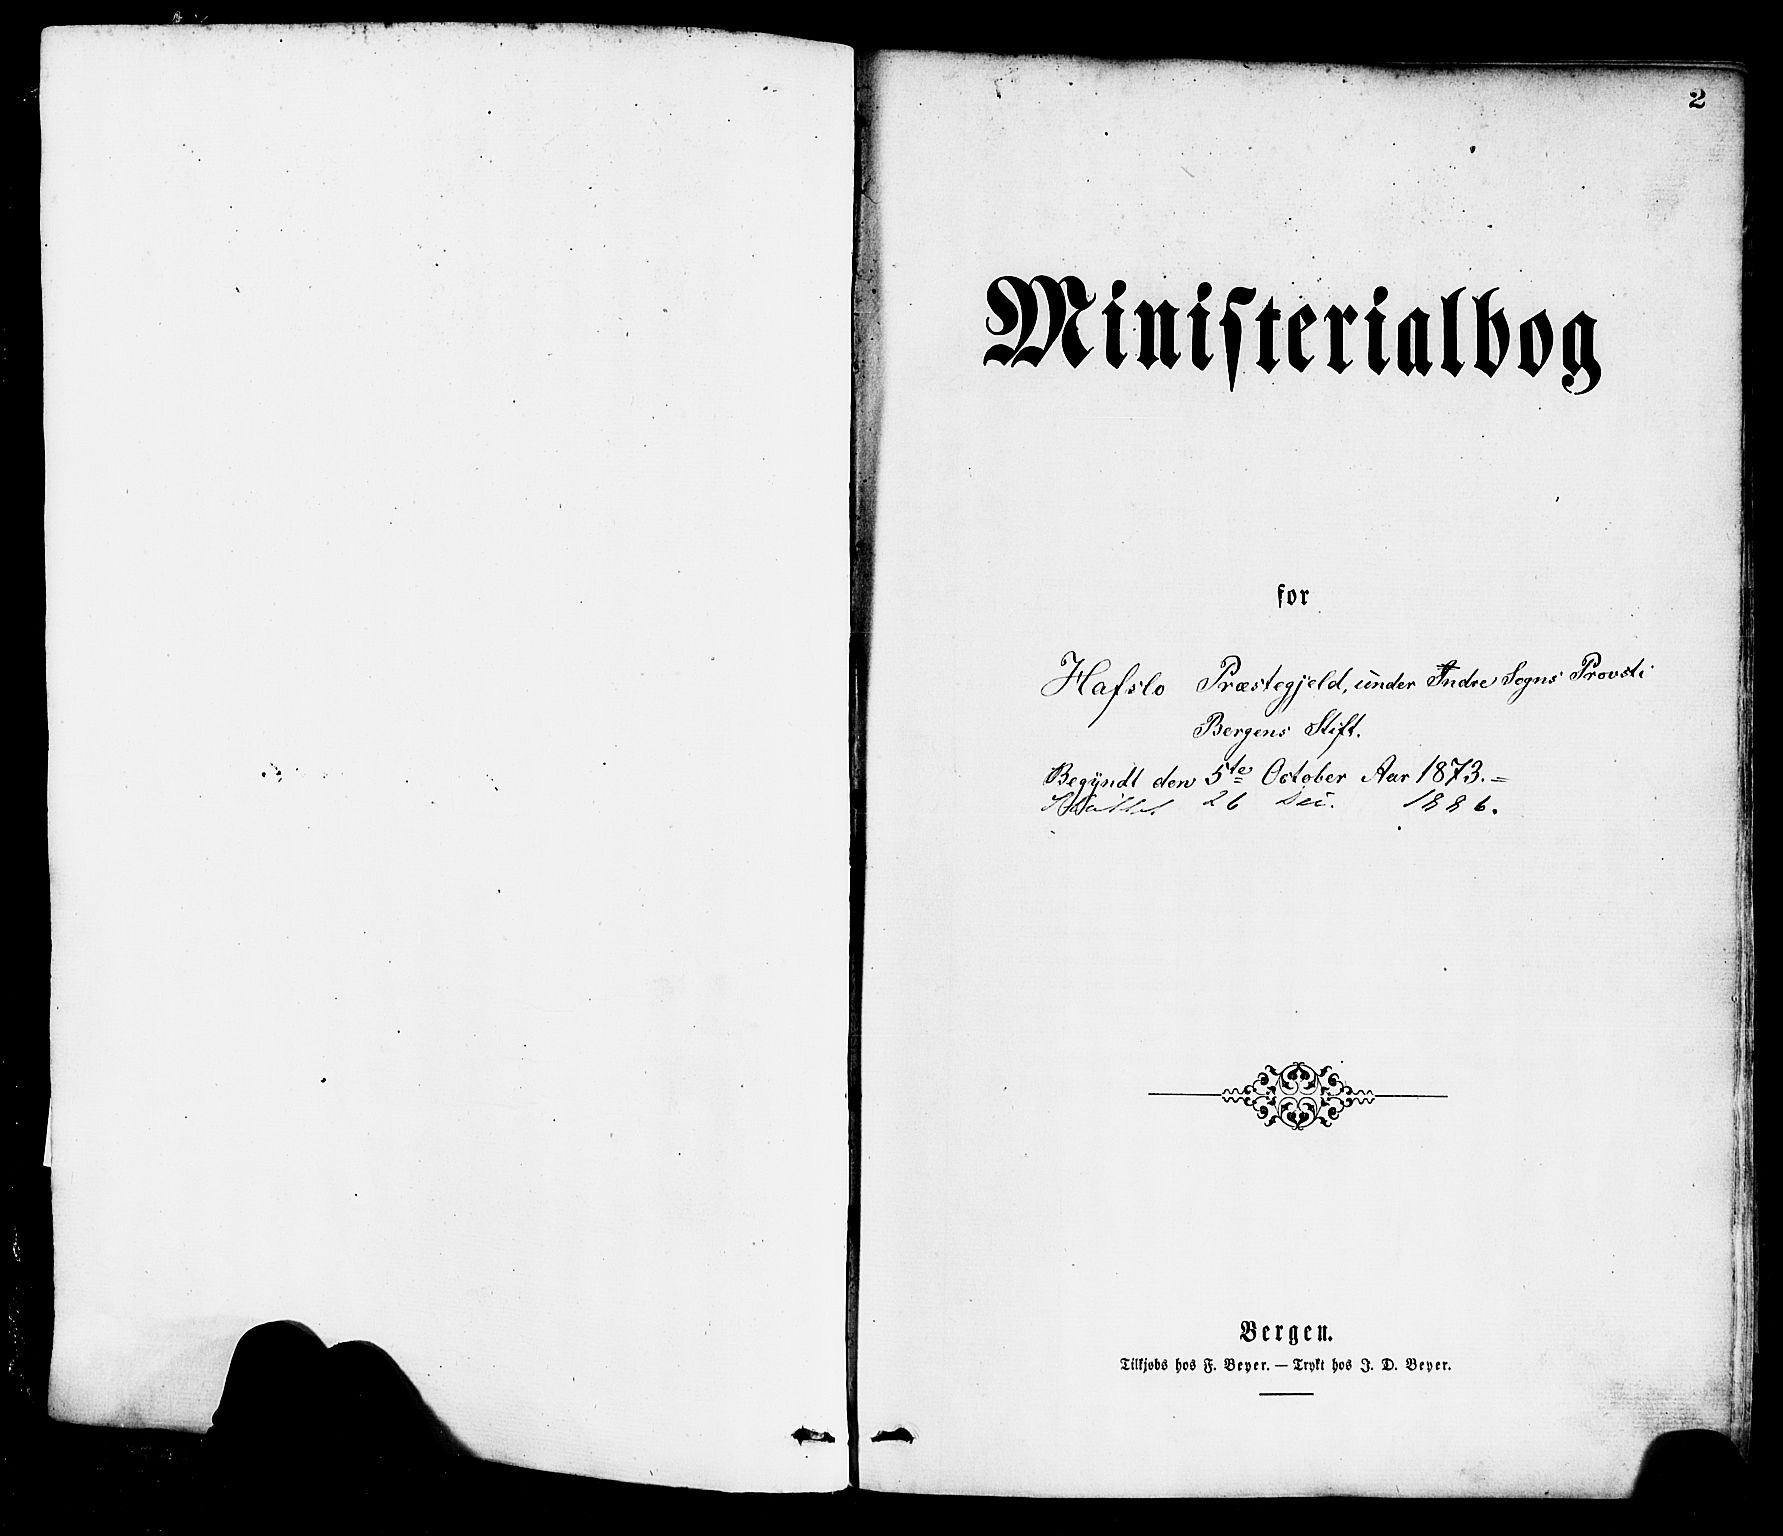 2
Ministerialbog
for
Hafslo Præstegjeld, under Indre Sogns Provsti
Bergens Stift.
Begyndt den 5te October Aar 1873.=
26 Dec. 1886.
Bergen.
Tilkjøbs hos F. Beyer. — Trykt hos J. D. Beyer.